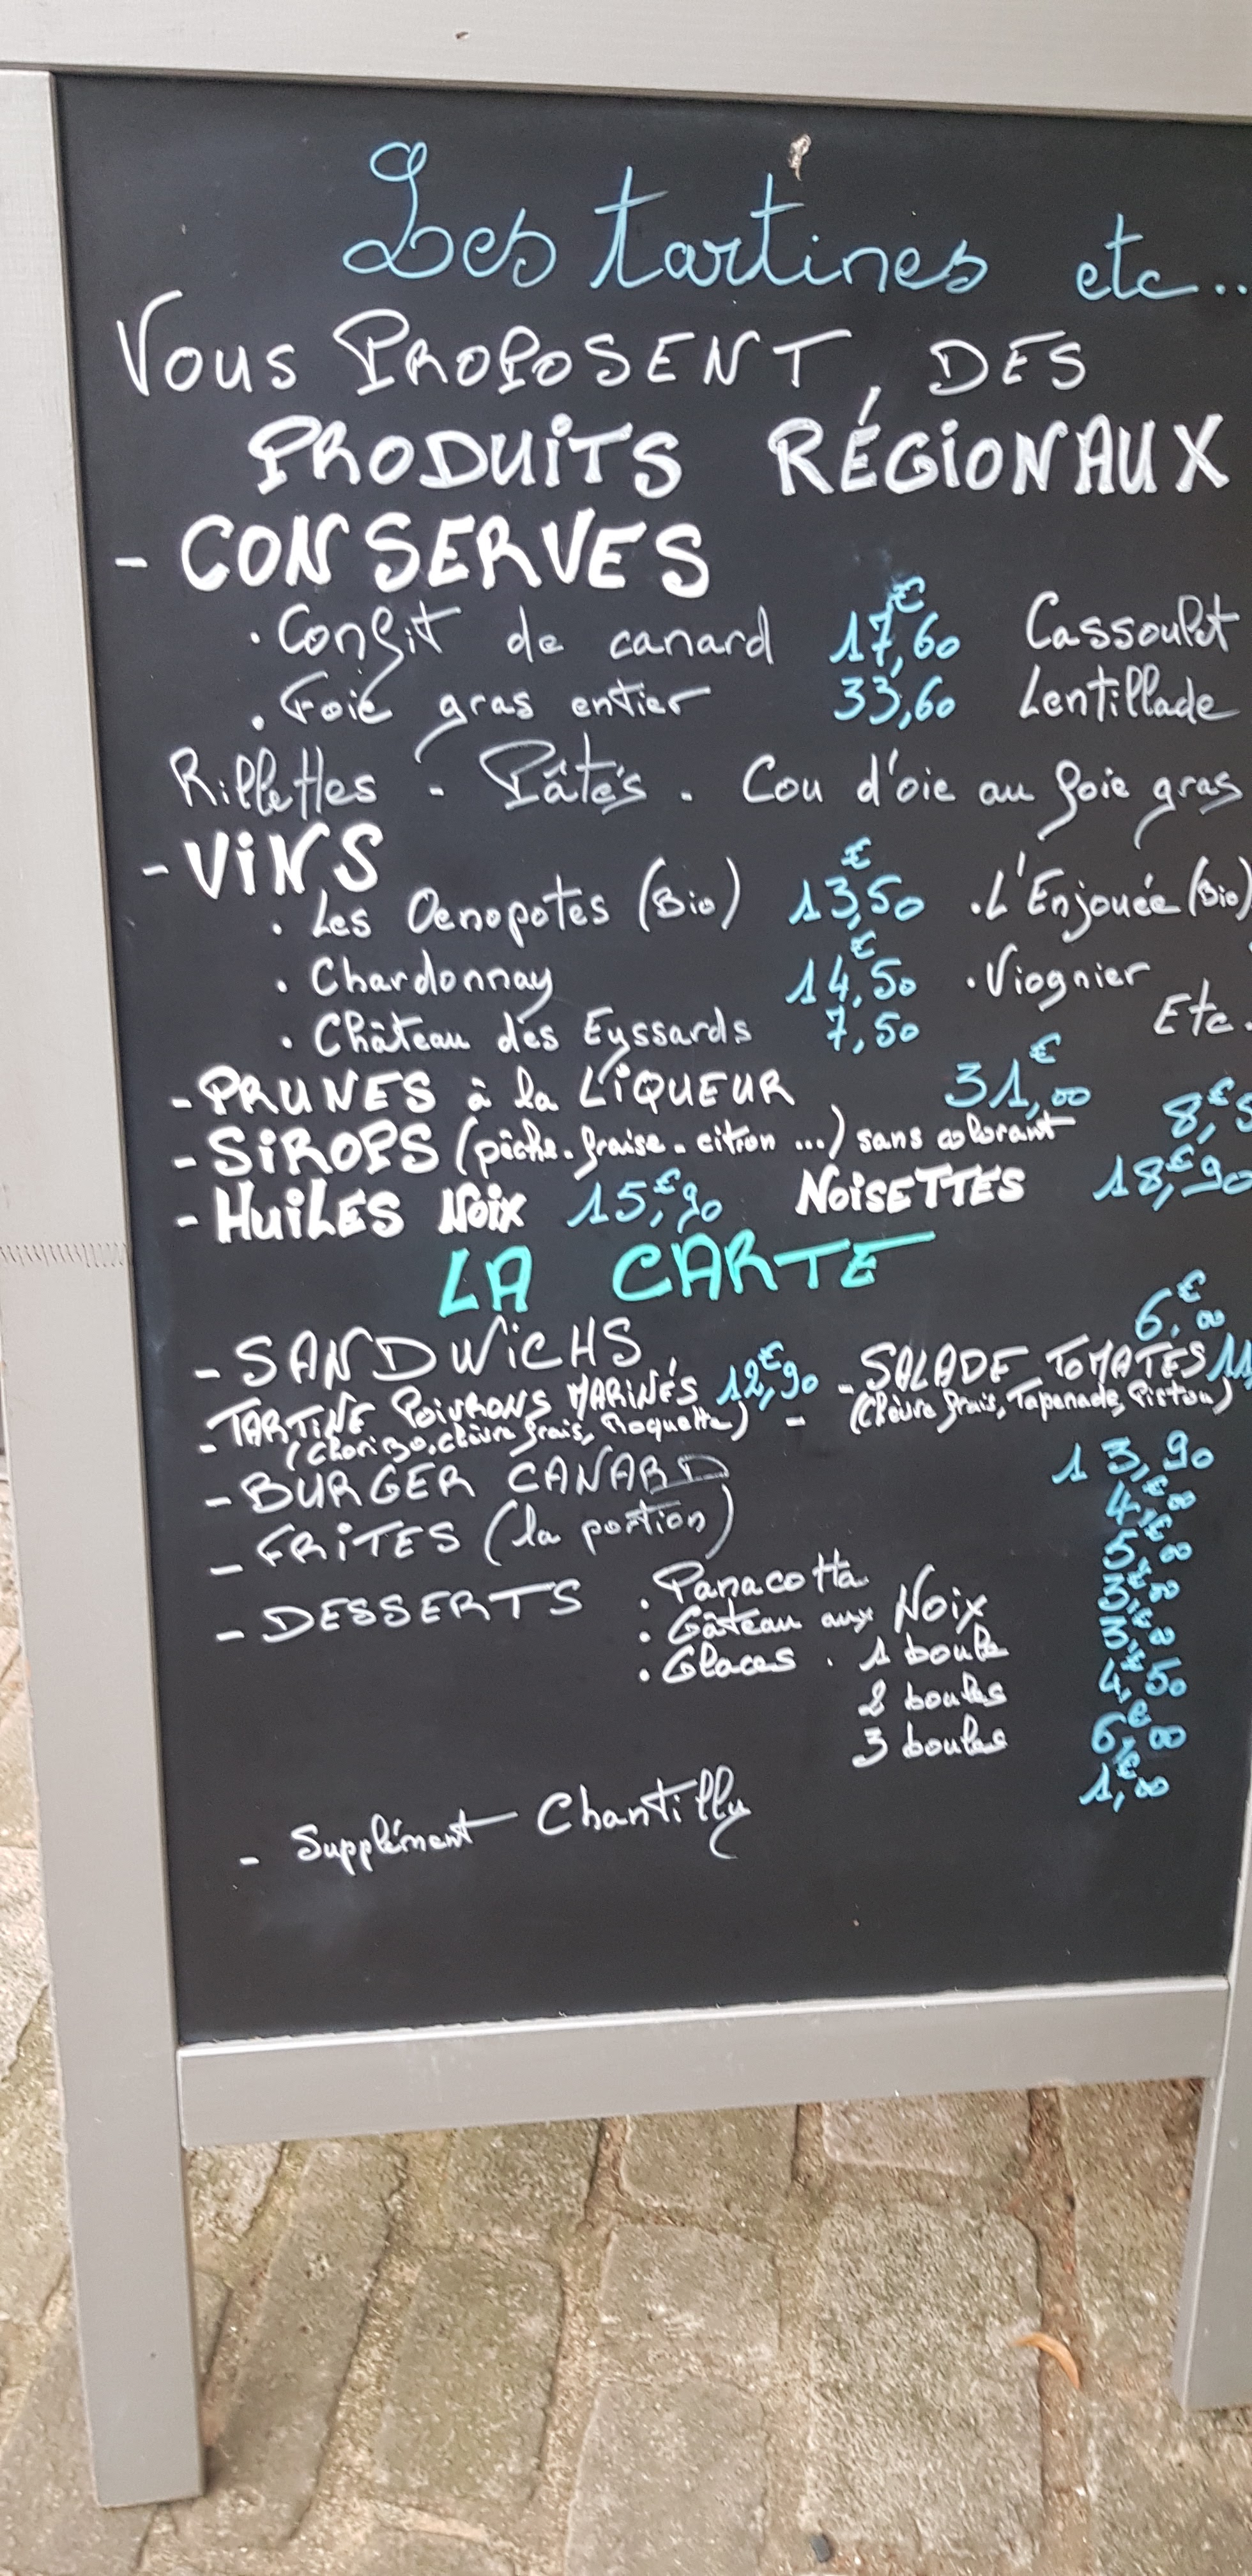 Les tartines etc...
Vous PROPOSENT DES
PRODUITS RÉGIONAUX
- CONSERVES
. Confit de canard 17,€60 Cassoulet
. Foie gras entier 33,60 Lentillade
Rillettes - Pâtés . Cou d'oie au foie gras
- VINS
. Les Oenopotes (Bio) 13,€50 . L'Enjouée (Bio)
. Chardonnay 14,€50 . Viognier
. Château des Eyssards 7,50 Etc.
- PRUNES à la LIQUEUR 31,€00
- SIROPS (pêche. fraise. citron ...) sans colorant 8,€
- HUILES NOIX 15,€90 NOISETTES 18,€90
LA CARTE
- SANDWICHS 6,€00
- TARTINE POIVRONS MARINÉS 12,€90 - SALADE TOMATES
(Chorizo, chèvre frais, Roquette) - (Chèvre frais, Tapenade, Pistou)
- BURGER CANARD 13,90
- FRITES (la portion) 4,€00
- DESSERTS . Panacotta 5,€00
. Gâteau aux Noix 3,€00
. Glaces . 1 boule 3,€00
2 boules 4,€50
3 boules 6,€00
- Supplément Chantilly 1,€00